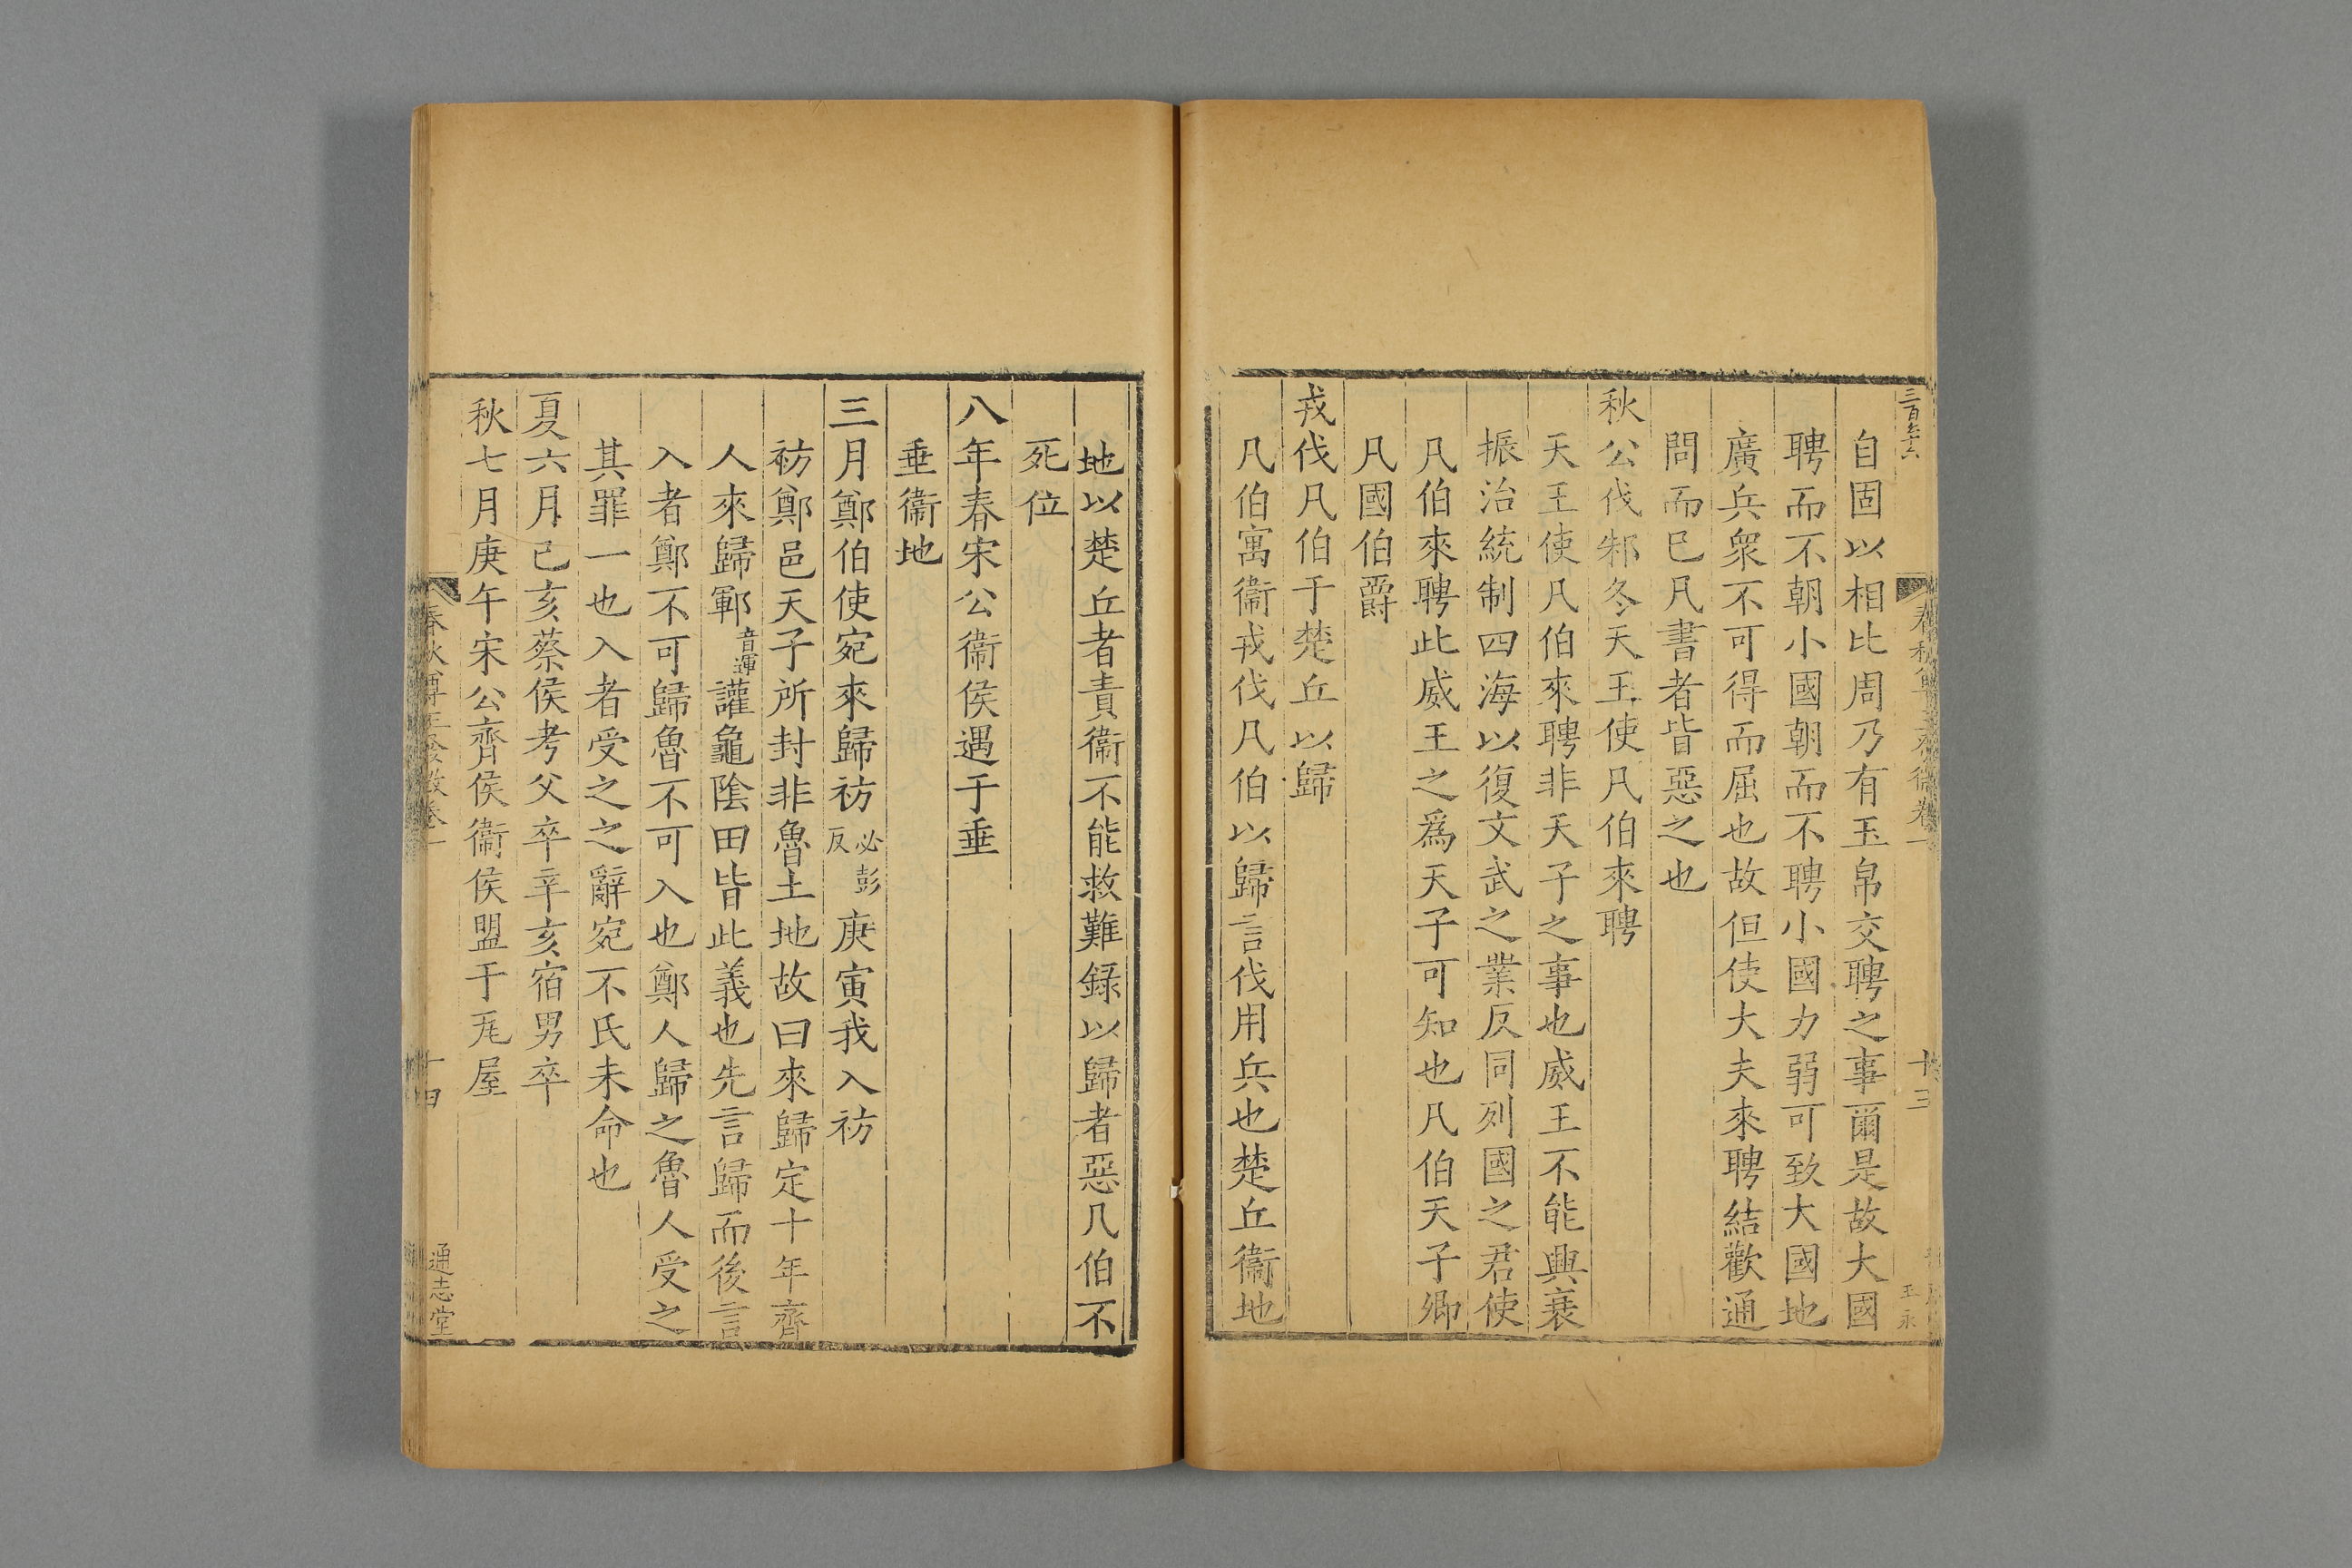 自固以相比周乃有玉帛交聘之事爾是故大國
聘而不朝小國朝而不聘小國力弱可致大國地
廣兵衆不可得而屈也故但使大夫來聘結歡通
問而巳凡書者皆惡之也
秋公伐邾冬天王使凡伯來聘
天王使凡伯來聘非天子之事也威王不能興衰
振治統制四海以復文武之業反同列國之君使
凡伯來聘此威王之爲天子可知也凡伯天子卿
凡國伯爵
戎伐凡伯于楚丘以歸
凡伯寓衞戎伐凡伯以歸言伐用兵也楚丘衞地
地以楚丘者責衞不能救難録以歸者惡凡伯不
死位
八年春宋公衞侯遇于垂
垂衞地
三月鄭伯使宛來歸祊必彭反庚寅我入祊
祊鄭邑天子所封非魯土地故曰來歸定十年齊
人來歸鄆音運讙龜陰田皆此義也先言歸而後言
入者鄭不可歸魯不可入也鄭人歸之魯人受之
其罪一也入者受之之辭宛不氏未命也
夏六月己亥蔡侯考父卒辛亥宿男卒
秋七月庚午宋公齊侯衞侯盟于瓦屋
十四
通志堂